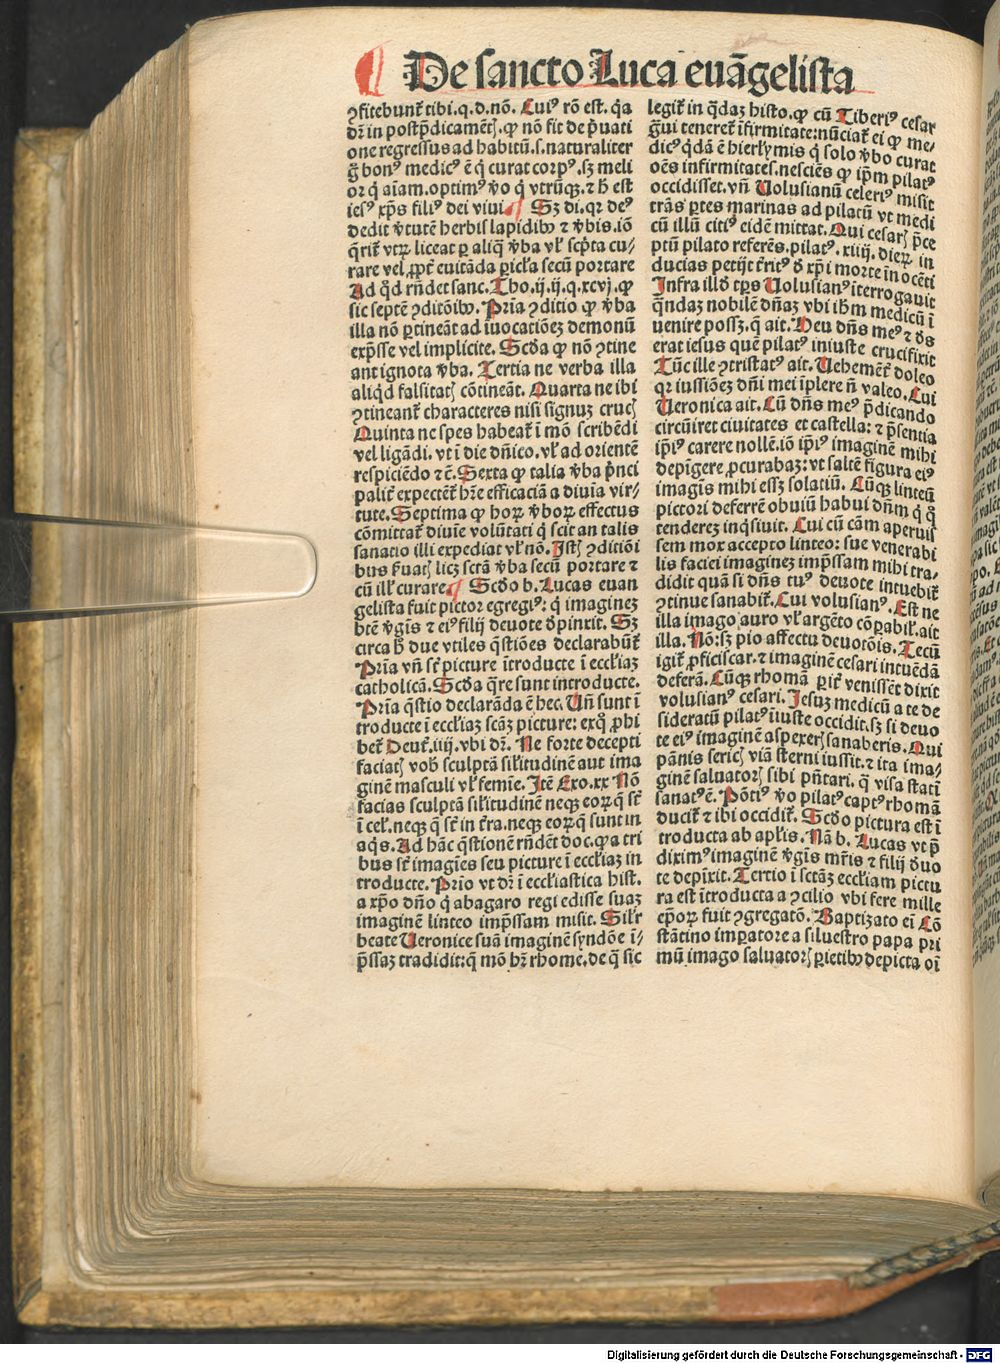 De sancto Luca euãgelista
ꝯfitebunt̃ tibi.q.d.nõ. Cuiꝰ rõ est. q̃a
dr̃ in postp̃dicamẽtꝭ. ꝙ nõ fit de p̃uati
one regressus ad habitũ.s.naturaliter
g̃ bonꝰ medicꝰ ẽ q̇ curat corpꝰ. sꝫ meli
or q̇ aĩam.optimꝰ v̓o q̇ vtrũqꝫ.⁊ h̃ est
iesꝰ xp̃s filiꝰ dei viui. Sꝫ di.qꝛ deꝰ
dedit v̓tutẽ herbis lapidibꝰ ⁊ v̓bis.iõ
q̃rit̃ vtꝝ liceat ꝑ aliq̃ v̓ba vl̃ scp̃ta cu⸗
rare vel ꝓpt̃ euitãda ꝑicl̃a secũ portare
Ad q̇d rñdet sanc. Tho.ij.ij.q.xcvj. ꝙ
sic septẽ ꝯditõibꝰ. Pria ꝯditio ꝙ v̓ba
illa nõ ꝑtineãt ad ĩuocatiõeꝫ demonũ
exp̃sse vel implicite. Scd̃a ꝙ nõ ꝯtine
ant ignota v̓ba. Tertia ne verba illa
aliq̇d falsitatꝭ cõtineãt. Quarta ne ibi
ꝯtineant̃ characteres nisi signuꝫ crucꝭ
Quinta ne spes habeat̃ ĩ mõ scribẽdi
vel ligãdi. vt ĩ die dñico. vl̃ ad oriente
respiciẽdo ⁊ c̃. Sexta ꝙ talia v̓ba p̃nci
palit̃ expectẽt̃ hr̃e efficaciã a diuĩa vir⸗
tute. Septima ꝙ hoꝝ v̓boꝝ effectus
cõmittat̃ diuĩe volũtati q̇ scit an talis
sanatio illi expediat vl̃ nõ. Istꝭ ꝯditiõi
bus f̃uatꝭ licꝫ sctã v̓ba secũ portare ⁊
cũ ill̃ curare. Scdo b. Lucas euan
gelista fuit pictor egregiꝰ: q̇ imagineꝫ
btẽ v̓gĩs ⁊ eiꝰ filij deuote dpinxit. Sꝫ
circa h̃ due vtiles q̃stiões declarabũt̃
Pria vñ st̃ picture ĩtroducte ĩ eccl̃iaꝫ
catholicã. Scda q̃re sunt introducte.
Pria q̃stio declarãda ẽ hec. Uñ sunt ĩ
troducte ĩ eccl̃iaꝫ scãꝫ picture: exq̃ ꝓhi
bet̃ Deut̃.iiij. vbi dr̃. Ne forte decepti
faciatꝭ vob̃ sculptã sil̃itudinẽ aut ima
ginẽ masculi vl̃ femĩe. Itẽ Exo.xx Nõ
facias sculptã sil̃itudinẽ neqꝫ eoꝝ q̃ st̃
ĩ cel̃.neqꝫ q̃ st̃ in t̃ra.neqꝫ eoꝝ q̃ sunt in
aq̃s. Ad hãc q̃stionẽ rñdẽt doc. ꝙ a tri
bus st̃ imagĩes seu picture ĩ eccl̃iaꝫ in
troducte. Prio vt dr̃ ĩ eccl̃iastica hist.
a xp̃o dño q̇ abagaro regi edisse suaꝫ
imaginẽ linteo imp̃ssam misit. Sil̃r
beate Ueronice suã imaginẽ syndõe ĩ⸗
p̃ssaꝫ tradidit:q̃ mõ hr̃ rhome.de q̃ sic
legit̃ in q̃daꝫ histo. ꝙ cũ Tiberiꝰ cesar
g̃ui teneret̃ ĩfirmitate:nũciat̃ ei ꝙ me⸗
dicꝰ q̇dã ẽ hierl̃ymis q̇ solo v̓bo curat
oẽs infirmitates.nesciẽs ꝙ ip̃m pilatꝰ
occidisset. vñ Uolusianũ celeriꝰ misit
trãs ꝑtes marinas ad pilatũ vt medi
cũ illũ citiꝰ eidẽ mittat. Qui cesarꝭ p̃ce
ptũ pilato referẽs.pilatꝰ.xiiij. dieꝝ in
ducias petijt t̃ritꝰ d̓ xp̃i morte ĩnocẽti
Infra illd̃ tp̃s Uolusianꝰ ĩterrogauit
q̃ndaꝫ nobilẽ dñaꝫ vbi ibm medicũ ĩ
uenire possꝫ.q̃ ait. Heu dñs meꝰ ⁊ d̓s
erat iesus quẽ pilatꝰ iniuste crucifixit
Tũc ille ꝯtristatꝰ ait. Uehemẽt̃ doleo
qꝛ iussiõeꝫ dñi mei ĩplere ñ valeo. Cui
Ueronica ait. Cũ dñs meꝰ p̃dicando
circũiret ciuitates et castella: ⁊ p̃sentia
ip̃iꝰ carere nollẽ.iõ ip̃iꝰ imaginẽ mihi
depĩgere ꝓcurabaꝫ: vt saltẽ figura eiꝰ
imagis mihi essꝫ solatiũ. Cũqꝫ linteũ
pictori deferrẽ obuiũ habui dñm q̇ q̊
tenderẽ inq̇siuit. Cui cũ cãm aperuis
sem mox accepto linteo: sue venerabi
lis faciei imagineꝫ imp̃ssam mihi tra⸗
didit quã si dñs tuꝰ deuote intuebit̃
ꝯtinue sanabit̃. Cui volusianꝰ. Est ne
illa imago auro vl̃ argẽto cõꝑabil̃. ait
illa. Nõ: sꝫ pio affectu deuotõis. Tecũ
igit̃ ꝓficiscar.⁊ imaginẽ cesari intuẽdã
deferã. Cũqꝫ rhomã ꝑit̃ venissẽt dixit
volusianꝰ cesari. Jesuꝫ medicũ a te de
sideratũ pilatꝰ ĩiuste occidit.sꝫ si deuo
te eiꝰ imaginẽ aspexerꝭ sanaberis. Qui
pãnis sericꝭ viã sterni iussit.⁊ ita ima⸗
ginẽ saluatorꝭ sibi pñtari. q̃ visa statĩ
sanatꝰ ẽ. Põtiꝰ v̓o pilatꝰ captꝰ rhomã
ducit̃ ⁊ ibi occidit̃. Scdo pictura est ĩ
troducta ab apl̃is. Nã b. Lucas vt p̃
diximꝰ imaginẽ v̓gĩs mr̃is ⁊ filij d̓uo
te depĩxit. Tertio ĩ sctãꝫ eccl̃iam pictu
ra est ĩtroducta a ꝯcilio vbi fere mille
ep̃oꝝ fuit ꝯgregatõ. Baptizato eĩ Cõ
stãtino imꝑatore a siluestro papa pri
mũ imago saluatorꝭ ꝑietibꝰ depicta oĩ
Digitalisierung gefördert durch die Deutsche Forschungsgemeinschaft - DFG